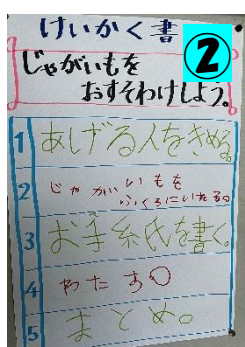 けいかく書
②
じゃがいもを
おすそわけしよう。
1 あげる人をきめる。
2 じゃがいもを
ふくろにいれる。
3 お手紙を書く。
4 わたす。
5 まとめ。